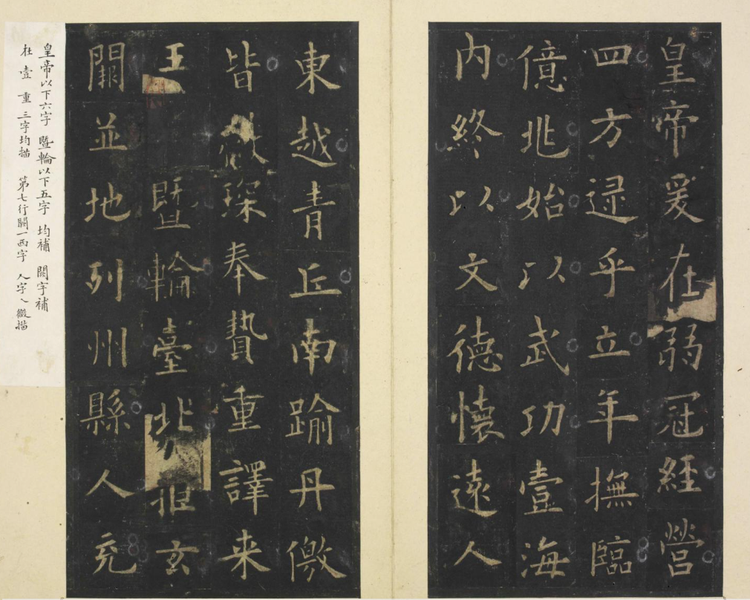 皇帝爰在弱冠經營
四方逮乎立年撫臨
億兆始以武功壹海
內終以文德懷遠人
東越青丘南踰丹儌
皆獻琛奉贄重譯来
王暨輪臺北拒玄
闕並地列州縣人充
皇帝以下六字 暨輪以下五字 均補 闕字補
壹重三字均描 第七行闕一西字 人字乀微描